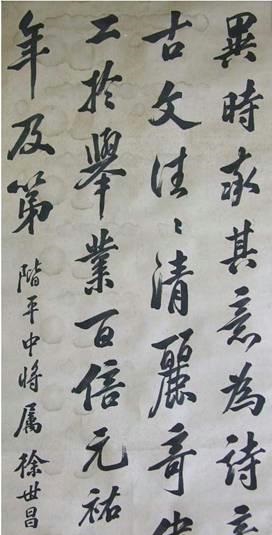 異時取其意為詩
古文往〻清麗奇
工於舉業百倍元祐
年及第
階平中將属徐世昌